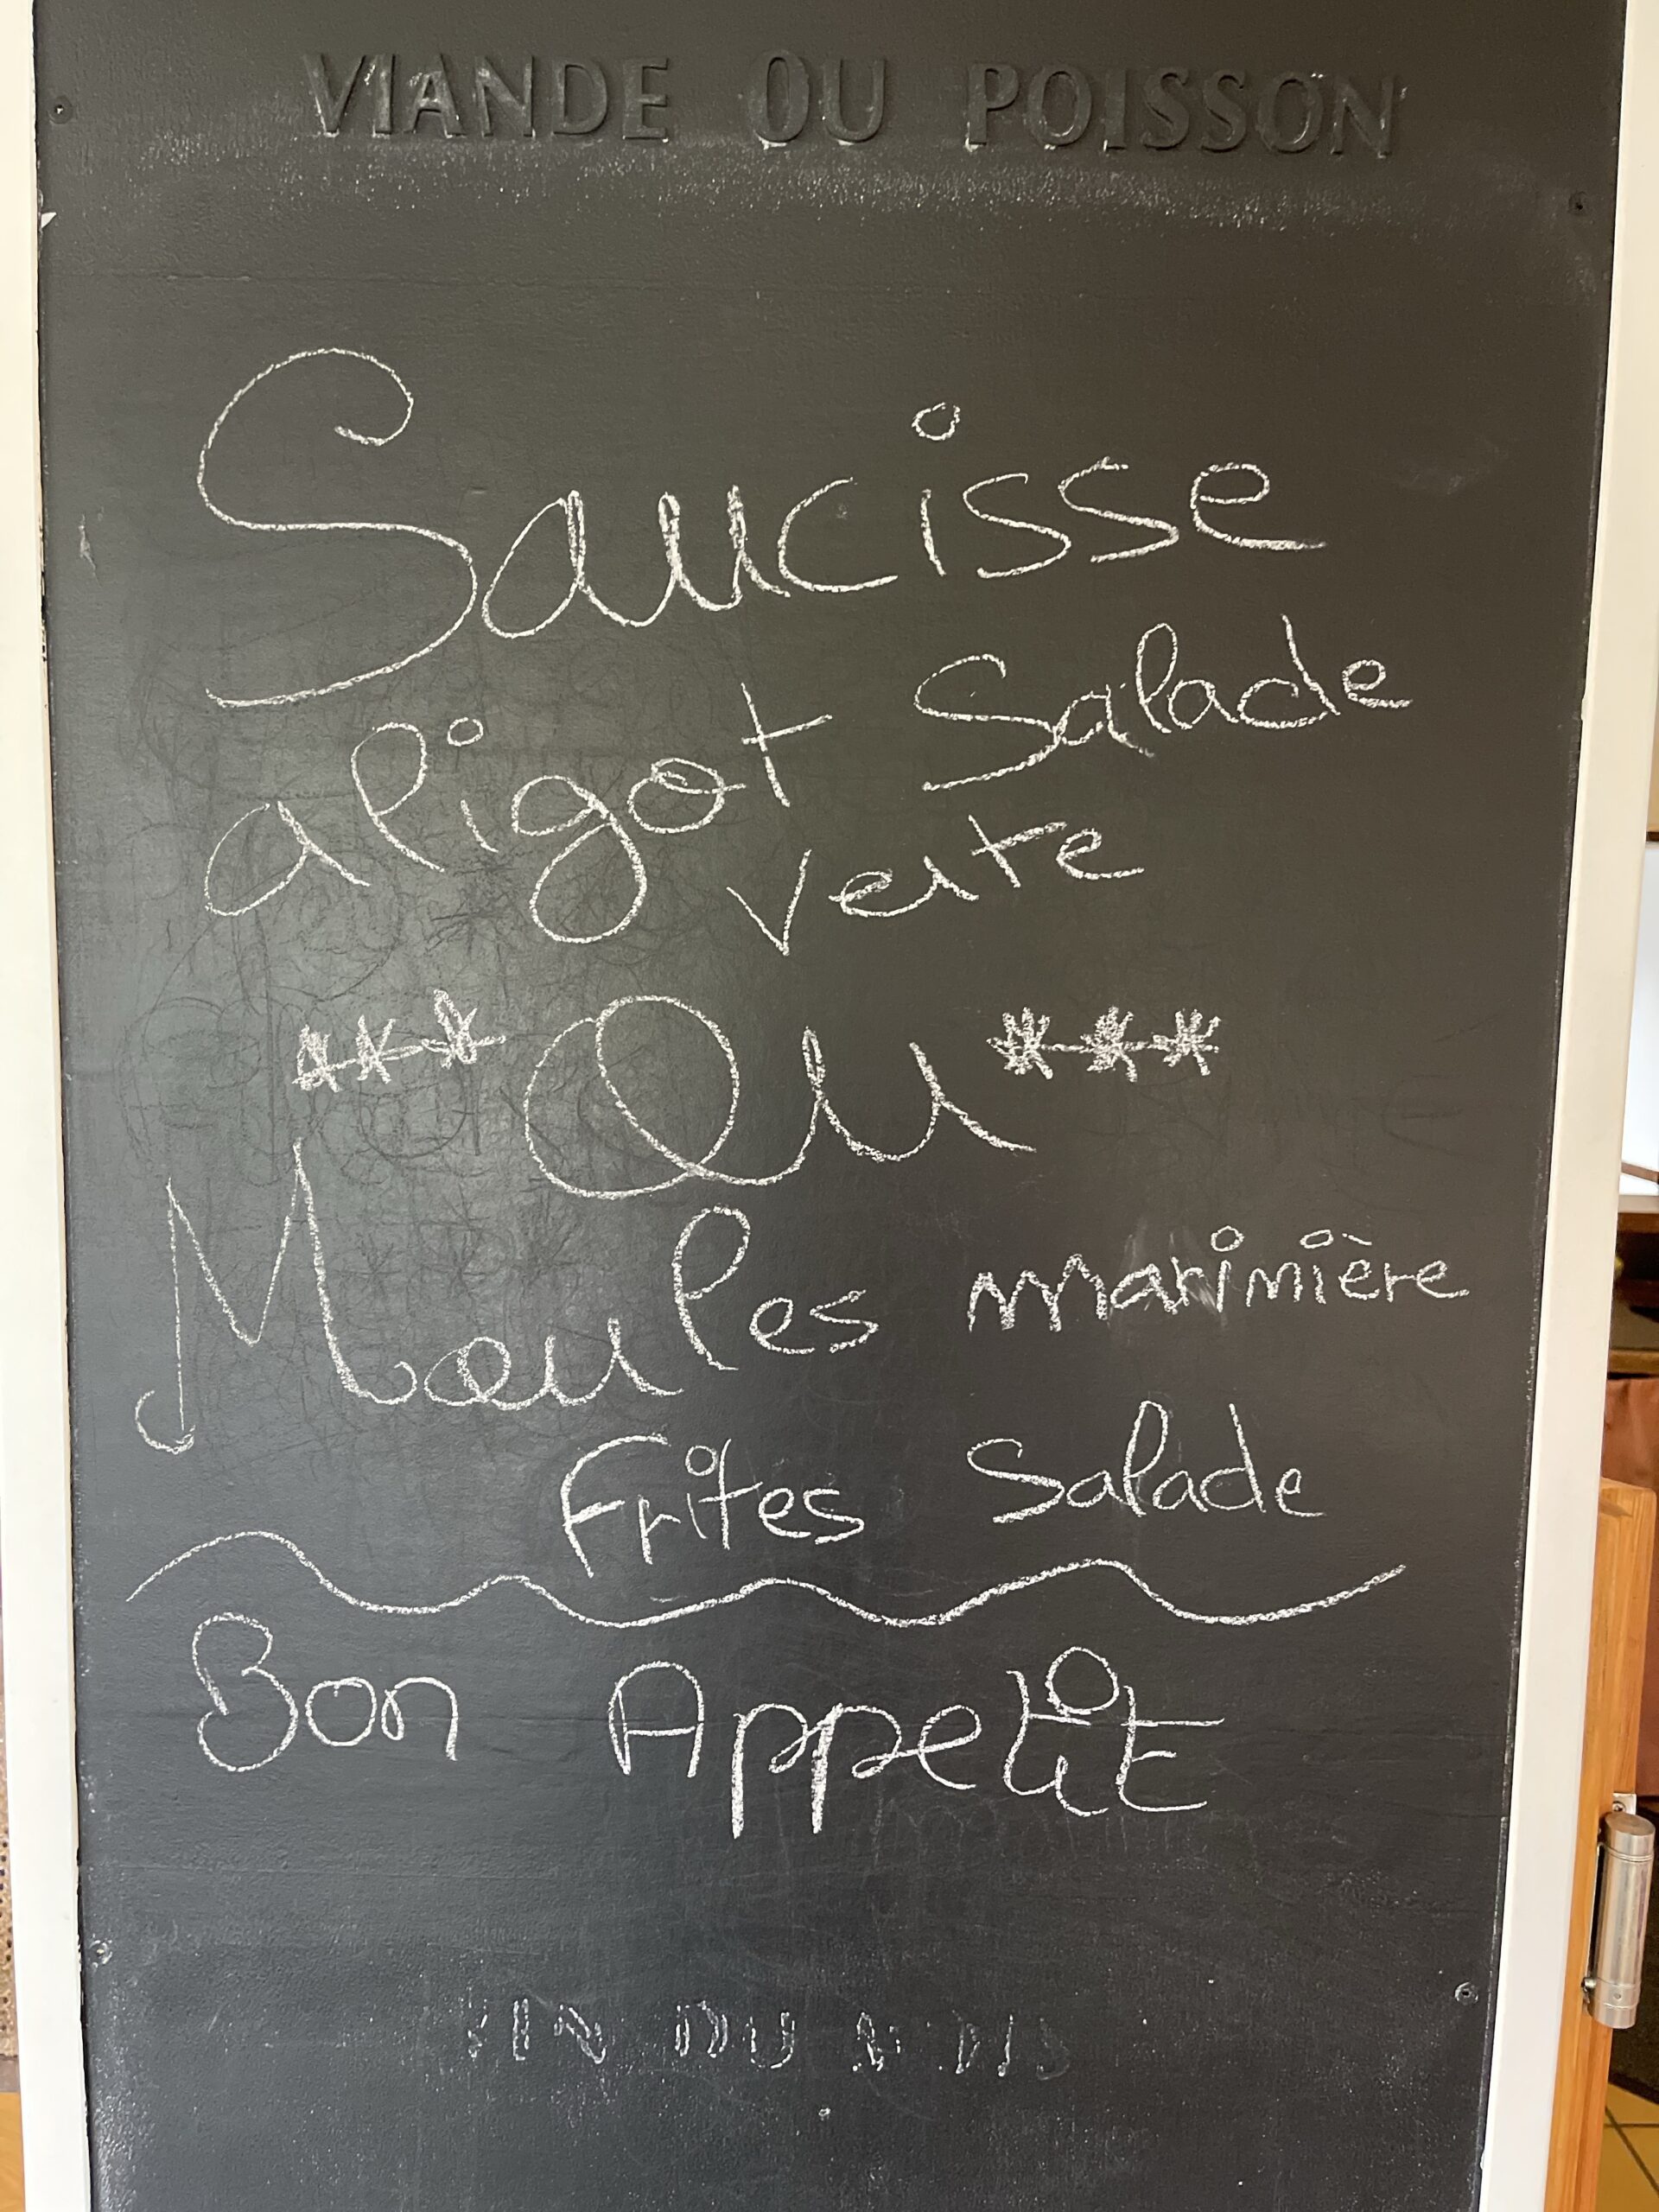 VIANDE OU POISSON
Saucisse
aligot Salade
verte
*** Ou ***
Moules marinière
Frites Salade
Bon Appetit
DU